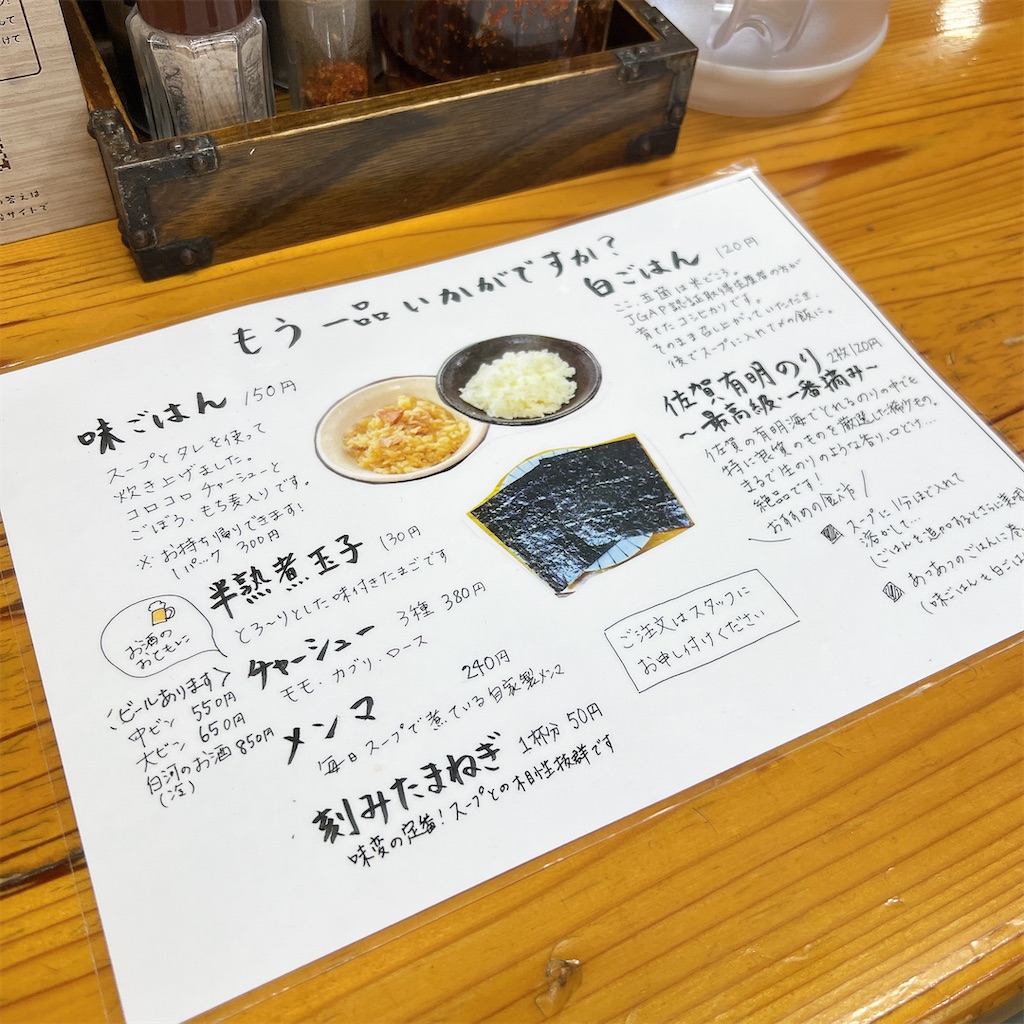 もう一品いかがですか?
味ごはん 150円
スープとタレを使って
炊き上げました。
コロコロ チャーシューと
ごぼう、もち麦入りです。
※お持ち帰りできます!
1パック 300円
半熟煮玉子 130円
とろ~りとした味付きたまごです
チャーシュー 3種 380円
モモ・カブリ・ロース
メンマ 240円
毎日スープで煮ている自家製メンマ
刻みたまねぎ 1杯分 50円
味変の定番!スープとの相性抜群です
お酒の
おともに
ビールあります
中ビン 550円
大ビン 650円
白河のお酒 850円
(冷)
白ごはん 120円
ここ、五箇は米どころ。
JGAP認証取得生産者の方が
育てたコシヒカリです。
そのまま召し上がっていただくも
後でスープに入れて〆の飯に。
佐賀有明のり 2枚120円
~最高級一番摘み~
佐賀の有明海でとれるのりの中でも
特に良質のものを厳選した稀少もの。
まるで生のりのような香り、口どけ…
絶品です!
おすすめの食べ方
スープに1分ほど入れて
溶かして…
(ごはんを追加するとさらに美味
あつあつのごはんに巻
(味ごはんも白ごは
ご注文はスタッフに
お申し付けください
して
けて
答えは
サイトで